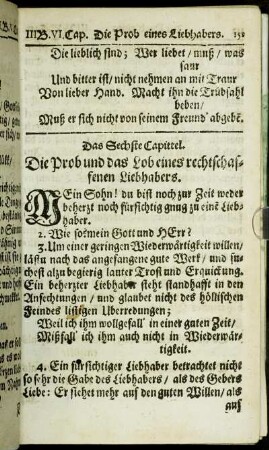 III B. VI. Cap. Die Prob eines Liebhabers. 151
Die lieblich sind; Wer liebet/ muß/ was
saur
Und bitter ist/ nicht nehmen an mit Traur
Von lieber Hand. Macht ihn die Trübsahl
beben/
Muß er sich nicht von seinem Freund' abgebē.
Das Sechste Capittel.
Die Prob und das Lob eines rechtschaf-
fenen Liebhabers.
MEin Sohn! du bist noch zur Zeit weder
beherzt noch fürsichtig gnug zu einē Lieb-
haber.
2. Wie so mein Gott und HErr?
3. Um einer geringen Wiederwärtigkeit willen/
lässu nach das angefangne gute Werk/ und su-
chest alzu begierig lauter Trost und Erquickung.
Ein beherzter Liebhaber steht standhafft in den
Anfechtungen/ und glaubet nicht des höllischen
Feindes listigen Uberredungen;
Weil ich ihm wollgefall' in einer guten Zeit/
Mißfall' ich ihm auch nicht in Wiederwär-
tigkeit.
4. Ein fürsichtiger Liebhaber betrachtet nicht
so sehr die Gabe des Liebhabers/ als des Gebers
Liebe: Er siehet mehr auf den guten Willen/ als
auf